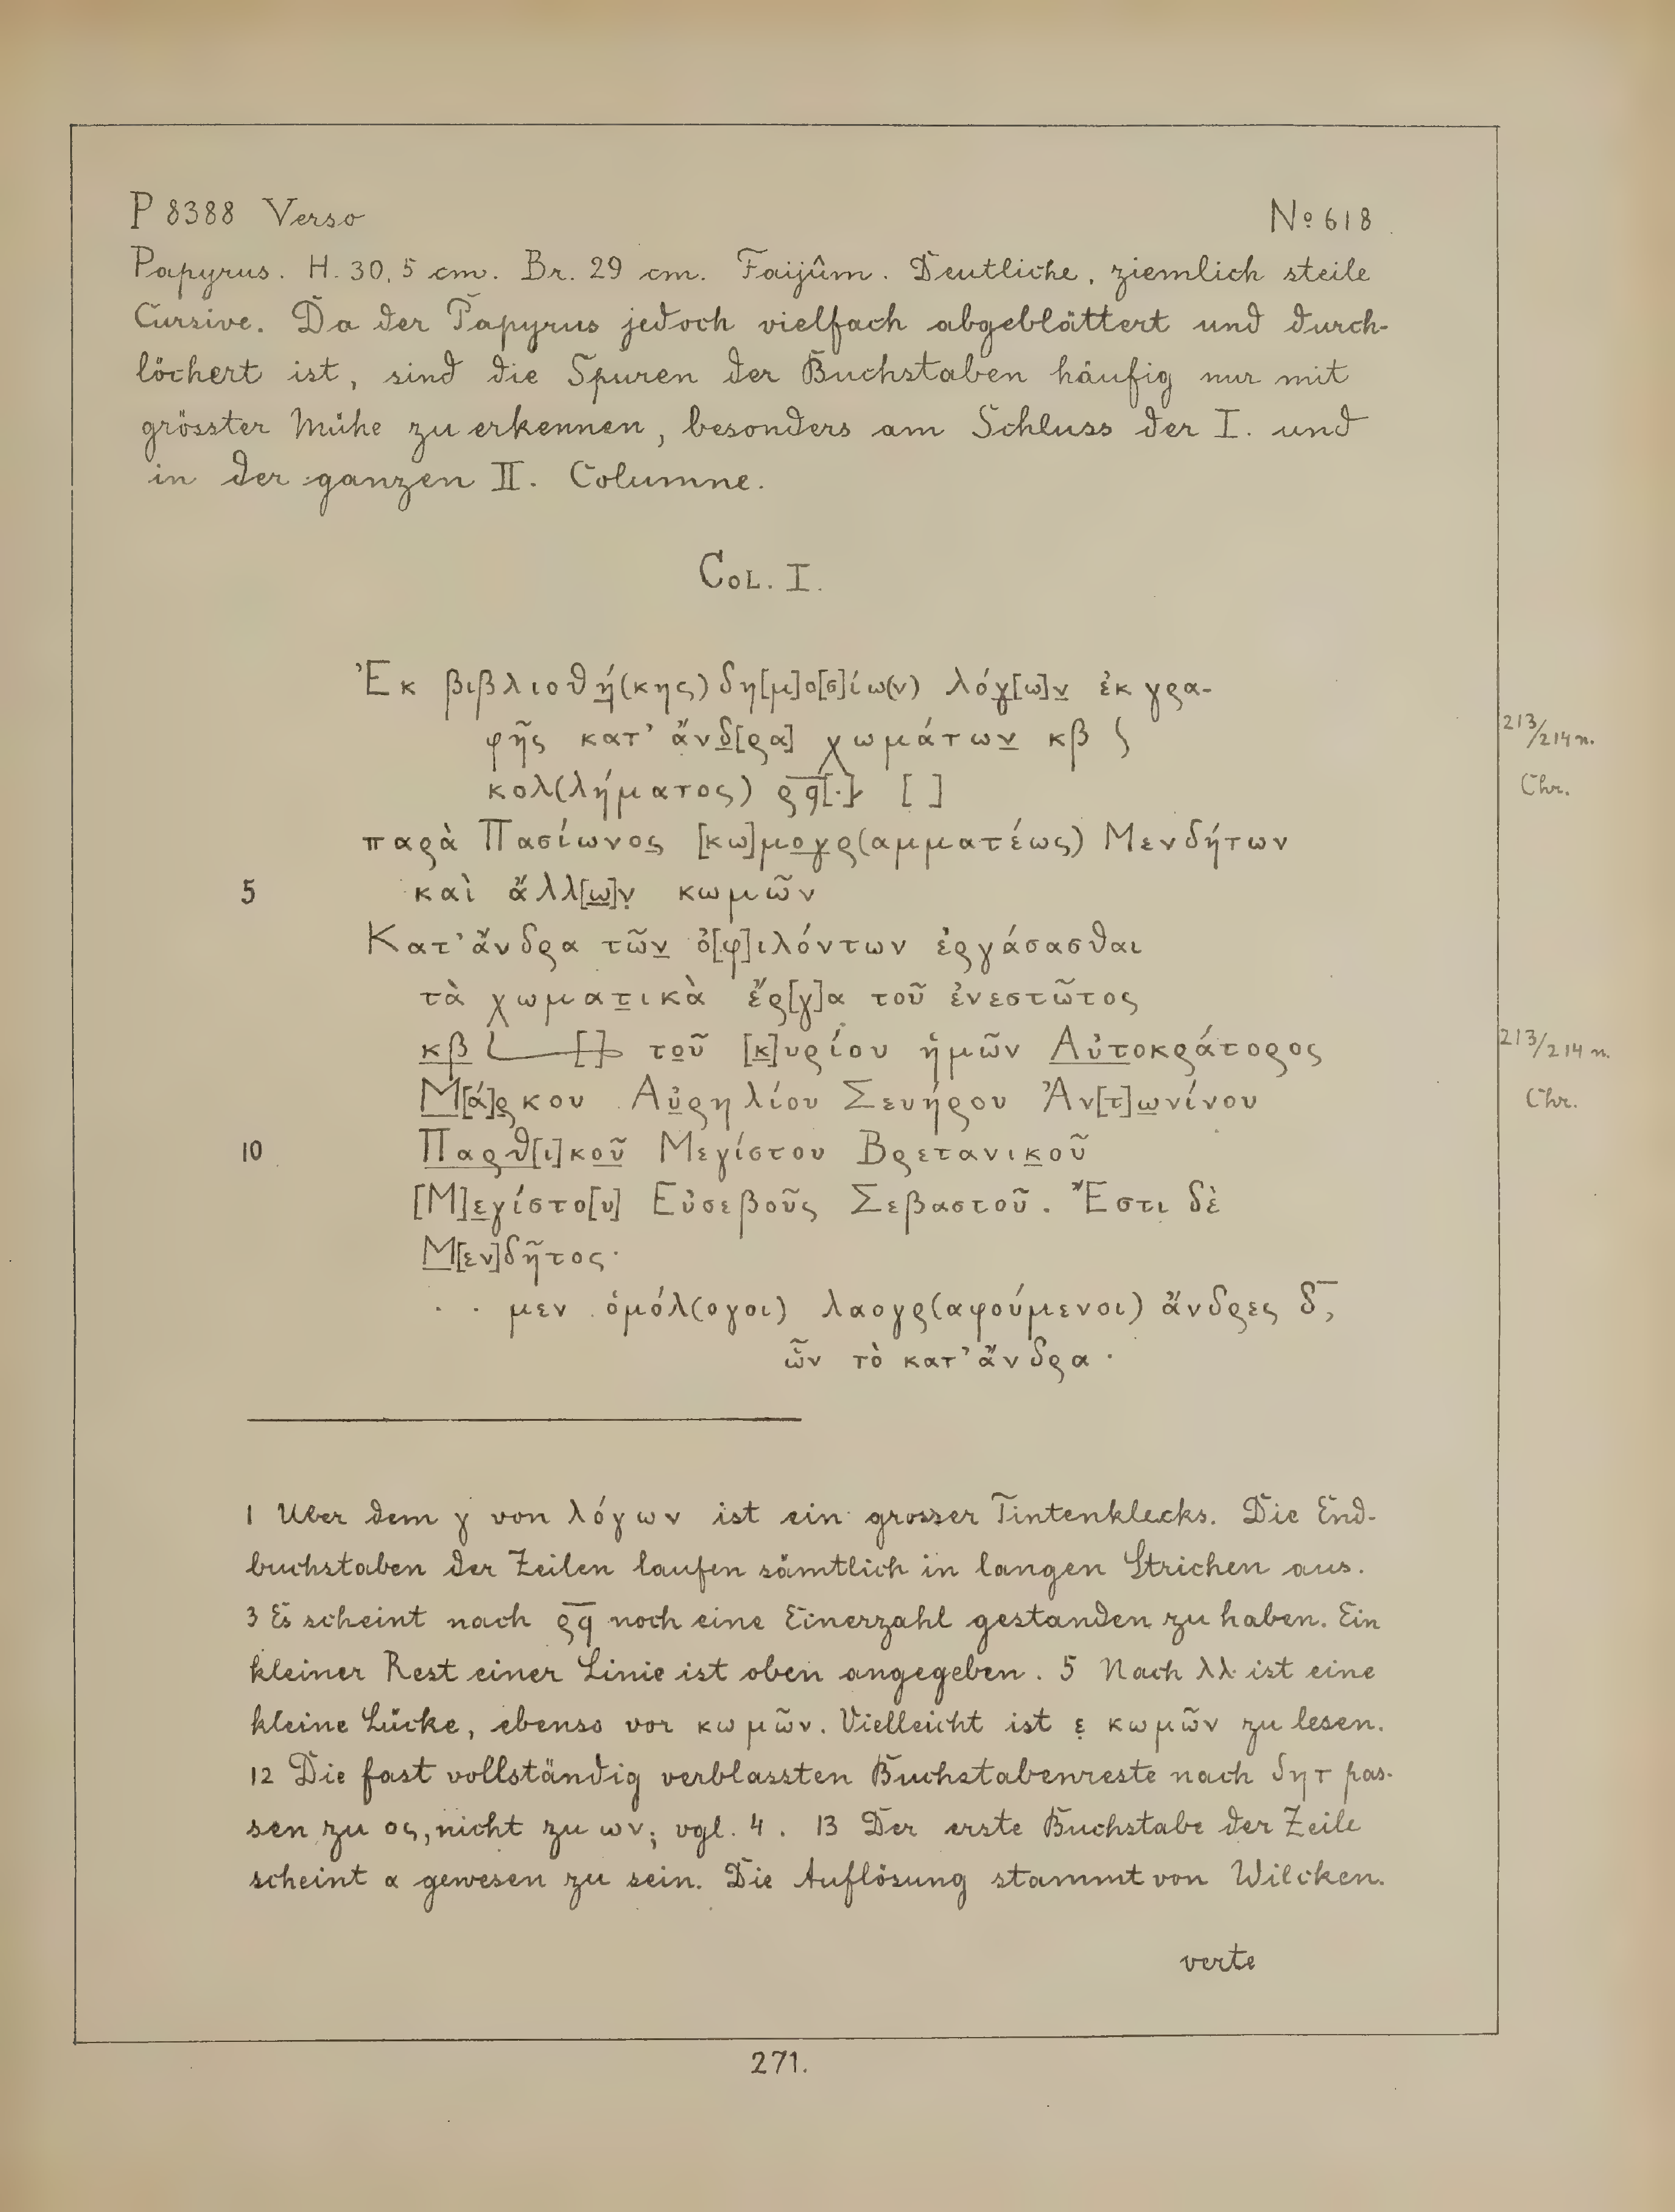 P 8388 Verso № 618
Papyrus. H. 30,5 cm. Br. 29 cm. Faijûm. Deutliche, ziemlich steile
Cursive. Da der Papyrus jedoch vielfach abgeblättert und durch-
löchert ist, sind die Spuren der Buchstaben häufig nur mit
grösster Mühe zu erkennen, besonders am Schluss der I. und
in der ganzen II. Columne.
COL. I.
Ἐκ βιβλιοθή(κης) δη[μ]ο[σ]ίω(ν) λόγ[ω]ν ἐκ γρα-
φῆς κατ’ ἄνδ[ρα] χωμάτων κβ 𐅹
213/214 n.
κολ(λήματος) ϱϥ[.] [ ]
Chr.
παρὰ Πασίωνος [κω]μογρ(αμματέως) Μενδήτων
5 καὶ ἄλλ[ω]ν κωμῶν
Κατ’ ἄνδρα τῶν ὀ[φ]ιλόντων ἐργάσασθαι
τὰ χωματικὰ ἔρ[γ]α τοῦ ἐνεστῶτος
κβ 𐅹 [ ] τοῦ [κ]υρίου ἡμῶν Αὐτοκράτορος
213/214 n.
Μ[ά]ρκου Αὐρηλίου Σευήρου Ἀν[τ]ωνίνου
Chr.
10 Παρθ[ι]κοῦ Μεγίστου Βρετανικοῦ
[Μ]εγίστο[υ] Εὐσεβοῦς Σεβαστοῦ. Ἔστι δὲ
Μ[εν]δῆτος·
. . μεν ὁμόλ(ογοι) λαογρ(αφούμενοι) ἄνδρες δ̅,
ὧν τὸ κατ’ ἄνδρα ·
1 Über dem γ von λόγων ist ein grosser Tintenklecks. Die End-
buchstaben der Zeilen laufen sämtlich in langen Strichen aus.
3 Es scheint nach ϱϥ noch eine Einerzahl gestanden zu haben. Ein
kleiner Rest einer Linie ist oben angegeben. 5 Nach λλ ist eine
kleine Lücke, ebenso vor κωμῶν. Vielleicht ist ε̣ κωμῶν zu lesen.
12 Die fast vollständig verblassten Buchstabenreste nach δητ pas-
sen zu ος, nicht zu ων; vgl. 4. 13 Der erste Buchstabe der Zeile
scheint α gewesen zu sein. Die Auflösung stammt von Wilcken.
verte
271.